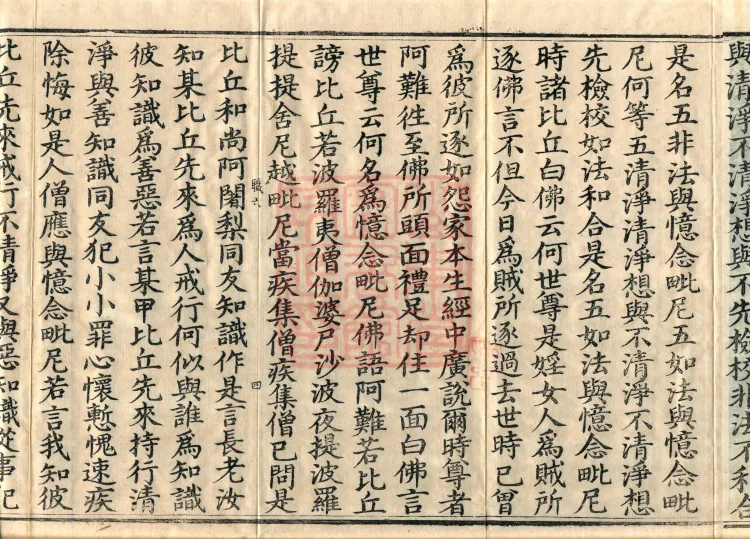 與清淨不清淨想與不先檢校非法不和合
是名五非法與憶念毗尼五如法與憶念毗
尼何等五清淨清淨想與不清淨不清淨想
先檢校如法和合是名五如法與憶念毗尼
時諸比丘白佛云何世尊是婬女人為賊所
逐佛言不但今日為賊所逐過去世時已曾
為彼所逐如怨家本生經中廣說爾時尊者
阿難徃至佛所頭面禮足却住一面白佛言
世尊云何名為憶念毗尼佛語阿難若比丘
謗比丘若波羅夷僧伽婆尸沙波夜提波羅
提提舍尼越毗尼當疾集僧疾集僧已問是
職六
四
比丘和尚阿闍梨同友知識作是言長老汝
知某比丘先來為人戒行何似與誰為知識
彼知識為善惡若言某甲比丘先來持行清
淨與善知識同友犯小小罪心懷慙愧速疾
除悔如是人僧應與憶念毗尼若言我知彼
比丘先來戒行不清淨又與惡知識從事犯